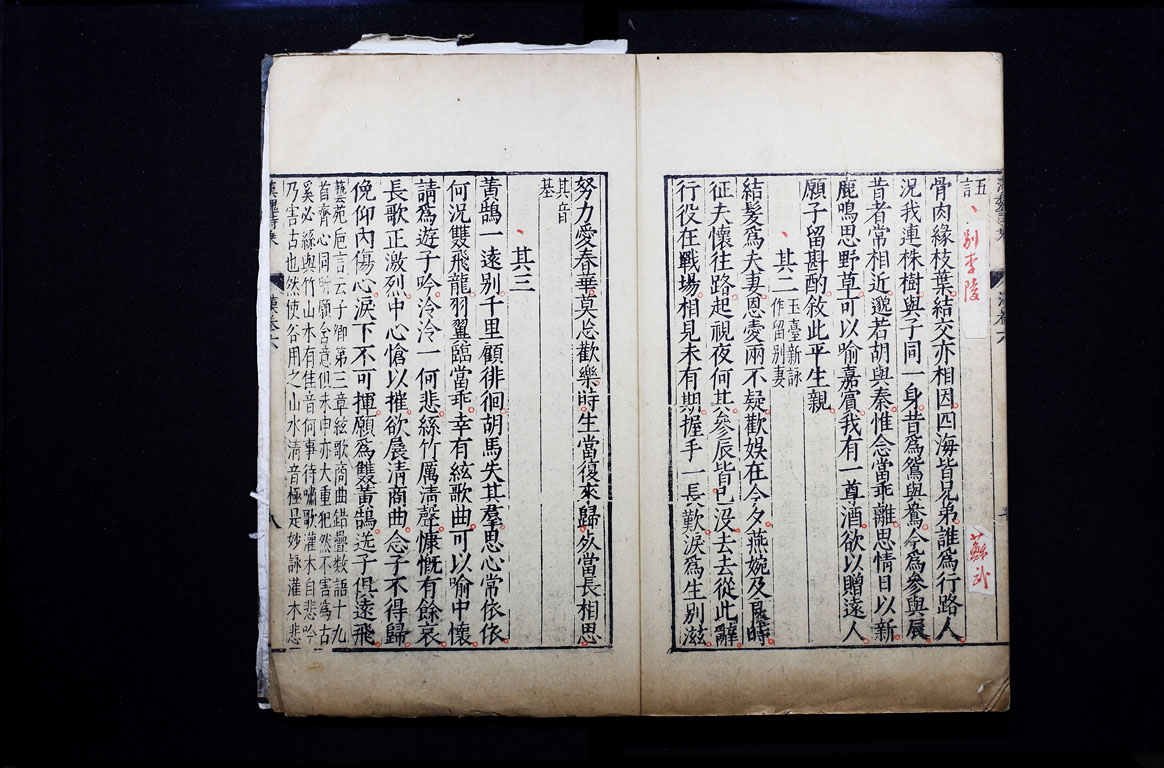 五
言
別李陵
蘇武
骨肉緣枝葉結交亦相因四海皆兄弟誰爲行路人
況我連株樹與子同一身昔爲鴛與鴦今爲參與辰
昔者常相近邈若胡與秦惟念當乖離思情日以新
鹿鳴思野草可以喻嘉賓我有一尊酒欲以贈遠人
願子留斟酌敘此平生親
其二
玉臺新詠
作留別妻
結髮爲夫妻恩愛兩不疑歡娛在今夕燕婉及良時
征夫懷往路起視夜何其參辰皆已没去去從此辭
行役在戰場相見未有期握手一長歎淚爲生別滋
努力愛春華莫忘歡樂時生當復來歸死當長相思
其音
基
其三
黃鵠一遠別千里顧徘徊胡馬失其羣思心常依依
何況雙飛龍羽翼臨當乖幸有絃歌曲可以喻中懷
請爲遊子吟泠泠一何悲絲竹厲淸聲慷慨有餘哀
長歌正激烈中心愴以摧欲展淸商曲念子不得歸
俛仰內傷心淚下不可揮願爲雙黃鵠送子俱遠飛
藝苑巵言云子卿第三章絃歌商曲錯疊數語十九
首齊心同所願含意俱未申亦大重犯然不害爲古
奚必絲與竹山水有佳音何事待嘯歌灌木自悲吟
乃害古也然使谷用之山水淸音極是妙詠灌木悲
八